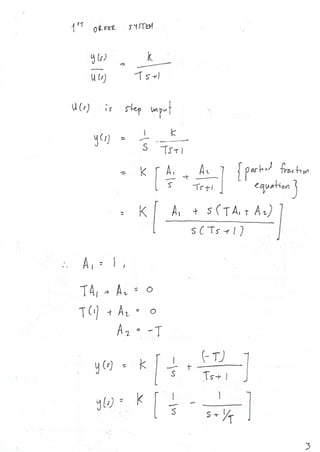 1ST ORDER SYSTEM
y(s)/u(s) = K/Ts+1
u(s) is step input
y(s) = 1/s · K/Ts+1
= K [ A1/s + A2/Ts+1 ] {partial fraction equation}
= K [ A1 + s(TA1 + A2) / s(Ts+1) ]
∴ A1 = 1,
TA1 + A2 = 0
T(1) + A2 = 0
A2 = -T
y(s) = K [ 1/s + (-T)/Ts+1 ]
y(s) = K [ 1/s - 1/s+1/T ]
3